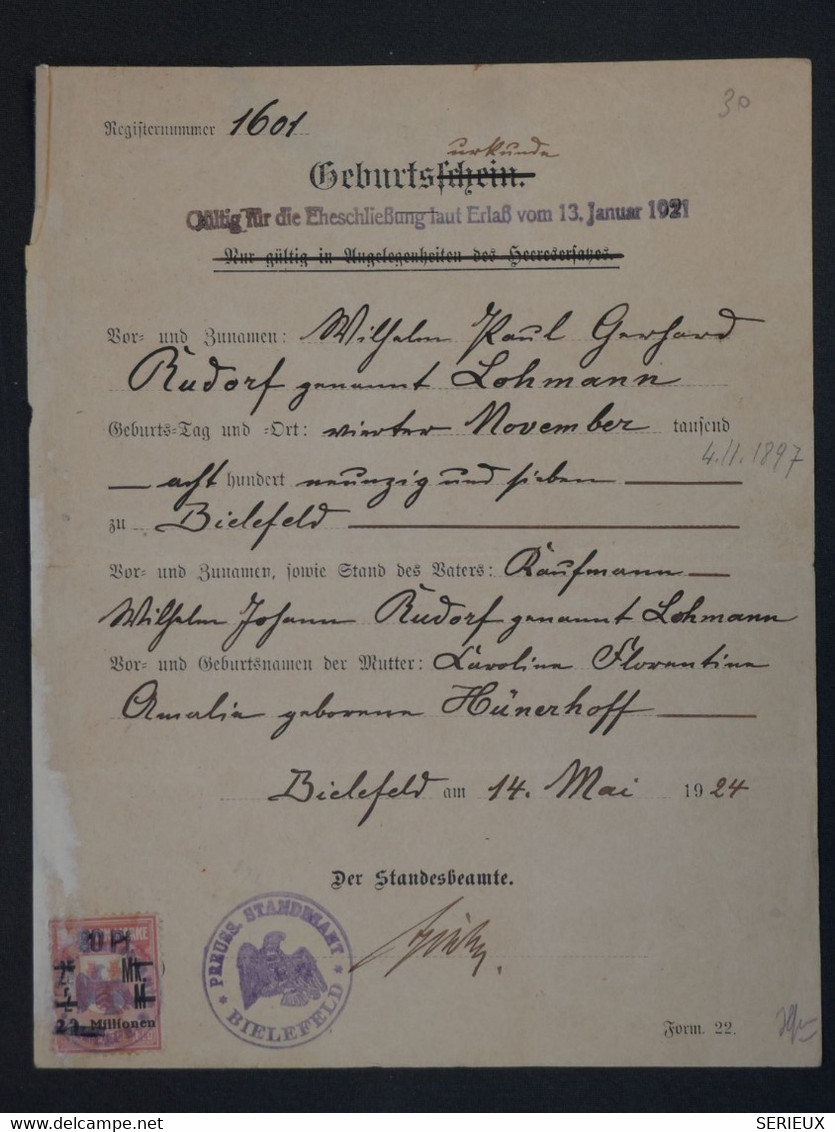 30
Registernummer 1601
urkunde
Geburtsschein.
Gültig für die Eheschließung laut Erlaß vom 13. Januar 1921
Nur gültig in Angelegenheiten des Heeresersatzes.
Vor- und Zunamen: Wilhelm Paul Gerhard
Rudorf genannt Lohmann
Geburts-Tag und -Ort: vierter November tausend
4.11.1897
acht hundert neunzig und sieben
zu Bielefeld
Vor- und Zunamen, sowie Stand des Vaters: Kaufmann
Wilhelm Johann Rudorf genannt Lohmann
Vor- und Geburtsnamen der Mutter: Karoline Florentine
Amalia geborene Hünerhoff
Bielefeld am 14. Mai 1924
Der Standesbeamte.
PREUSS. STANDESAMT
BIELEFELD
80 Pf.
Mk.
M
Millionen
Form. 22.
delcampe.net
SERIEUX